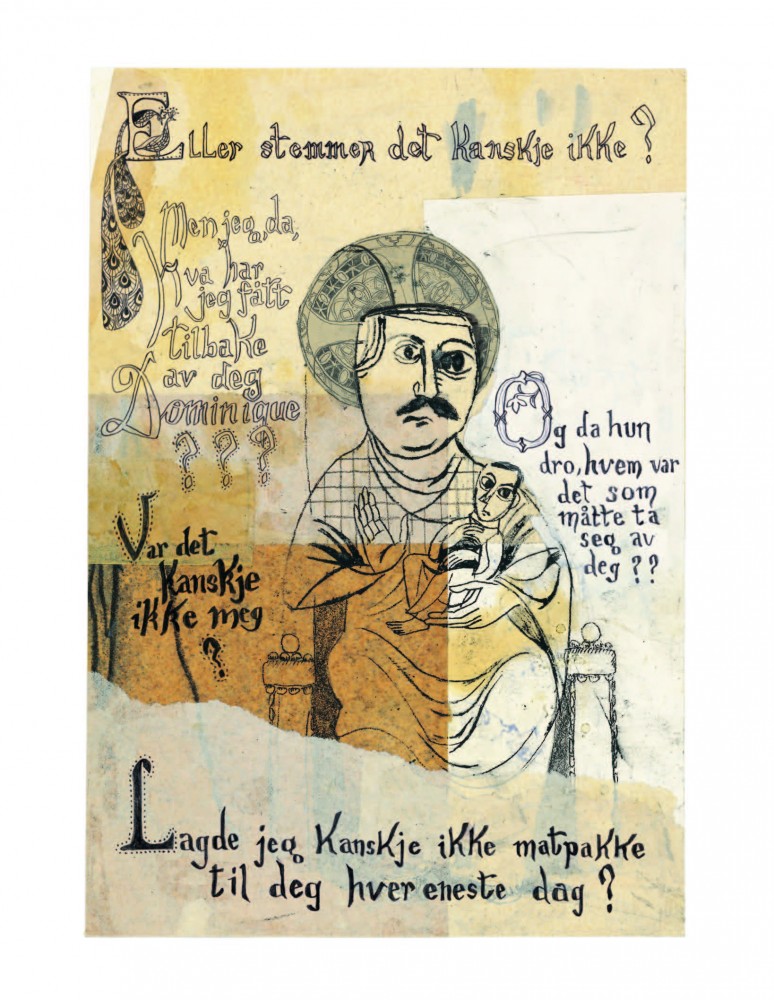 Eller stemmer det kanskje ikke?
Men jeg, da,
hva har
jeg fått
tilbake
av deg
Dominique
???
Og da hun
dro, hvem var
det som
måtte ta
seg av
deg??
Var det
kanskje
ikke meg
?
Lagde jeg kanskje ikke matpakke
til deg hver eneste dag?